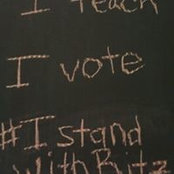 I teach
I vote
#I stand
with Ritz